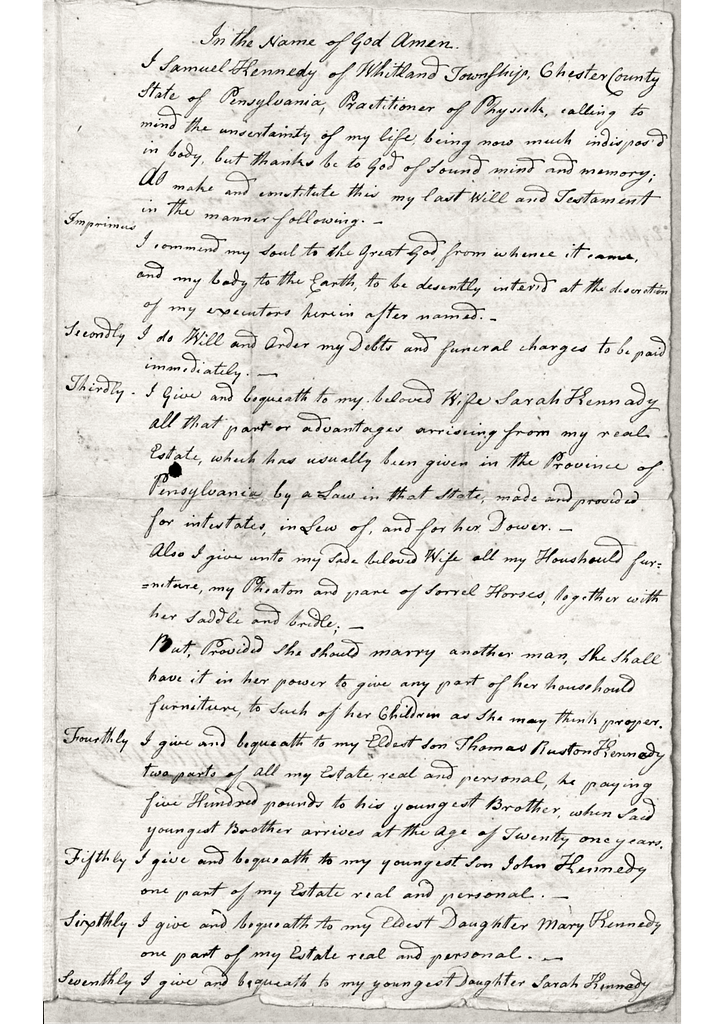 In the Name of God Amen.
I Samuel Kennedy of Whitland Township, Chester County
State of Pensylvania, Practitioner of Physick, calling to
mind the unsertainty of my life, being now much indispos'd
in body, but thanks be to God of Sound mind and memory;
do make and constitute this my last Will and Testament
in the manner following. —
Imprimus I commend my Soul to the Great God from whence it came,
and my body to the Earth, to be desently inter'd at the discretion
of my executors herein after named. —
Secondly I do Will and Order my Debts and funeral charges to be paid
immediately. —
Thirdly - I Give and bequeath to my beloved Wife Sarah Kennady
all that part or advantages arriseing from my real
Estate, which has usually been given in the Province of
Pensylvania by a Law in that State, made and provided
for intestates, in Lew of, and for her Dower. —
Also I give unto my Sade beloved Wife all my Houshould fur=
=neture, my Pheaton and pare of Sorrel Horses, together with
her Saddle and bridle, —
But, Provided She should marry another man, She Shall
have it in her power to give any part of her houshould
furneture, to Such of her Children as She may think proper.
Fourthly I give and bequeath to my Eldest Son Thomas Ruston Kennady
two parts of all my Estate real and personal, he paying
five Hundred pounds to his youngest Brother, when Said
youngest Brother arrives at the Age of Twenty one years.
Fifthly I give and bequeath to my youngest Son John Kennedy
one part of my Estate real and personal. —
Sixthly I give and bequeath to my Eldest Daughter Mary Kennedy
one part of my Estate real and personal. —
Seventhly I give and bequeath to my youngest Daughter Sarah Kennedy